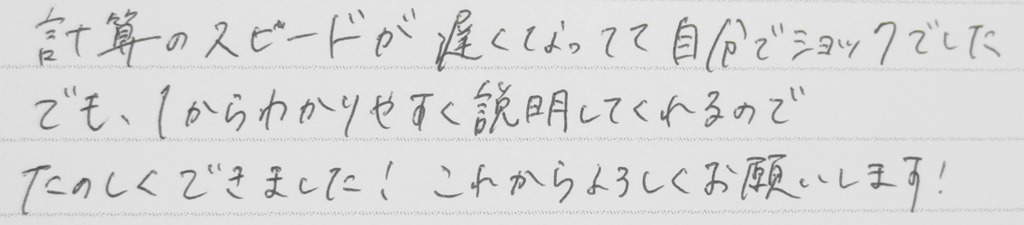 計算のスピードが遅くなってて自分でショックでした
でも、1からわかりやすく説明してくれるので
たのしくできました！これからよろしくお願いします！